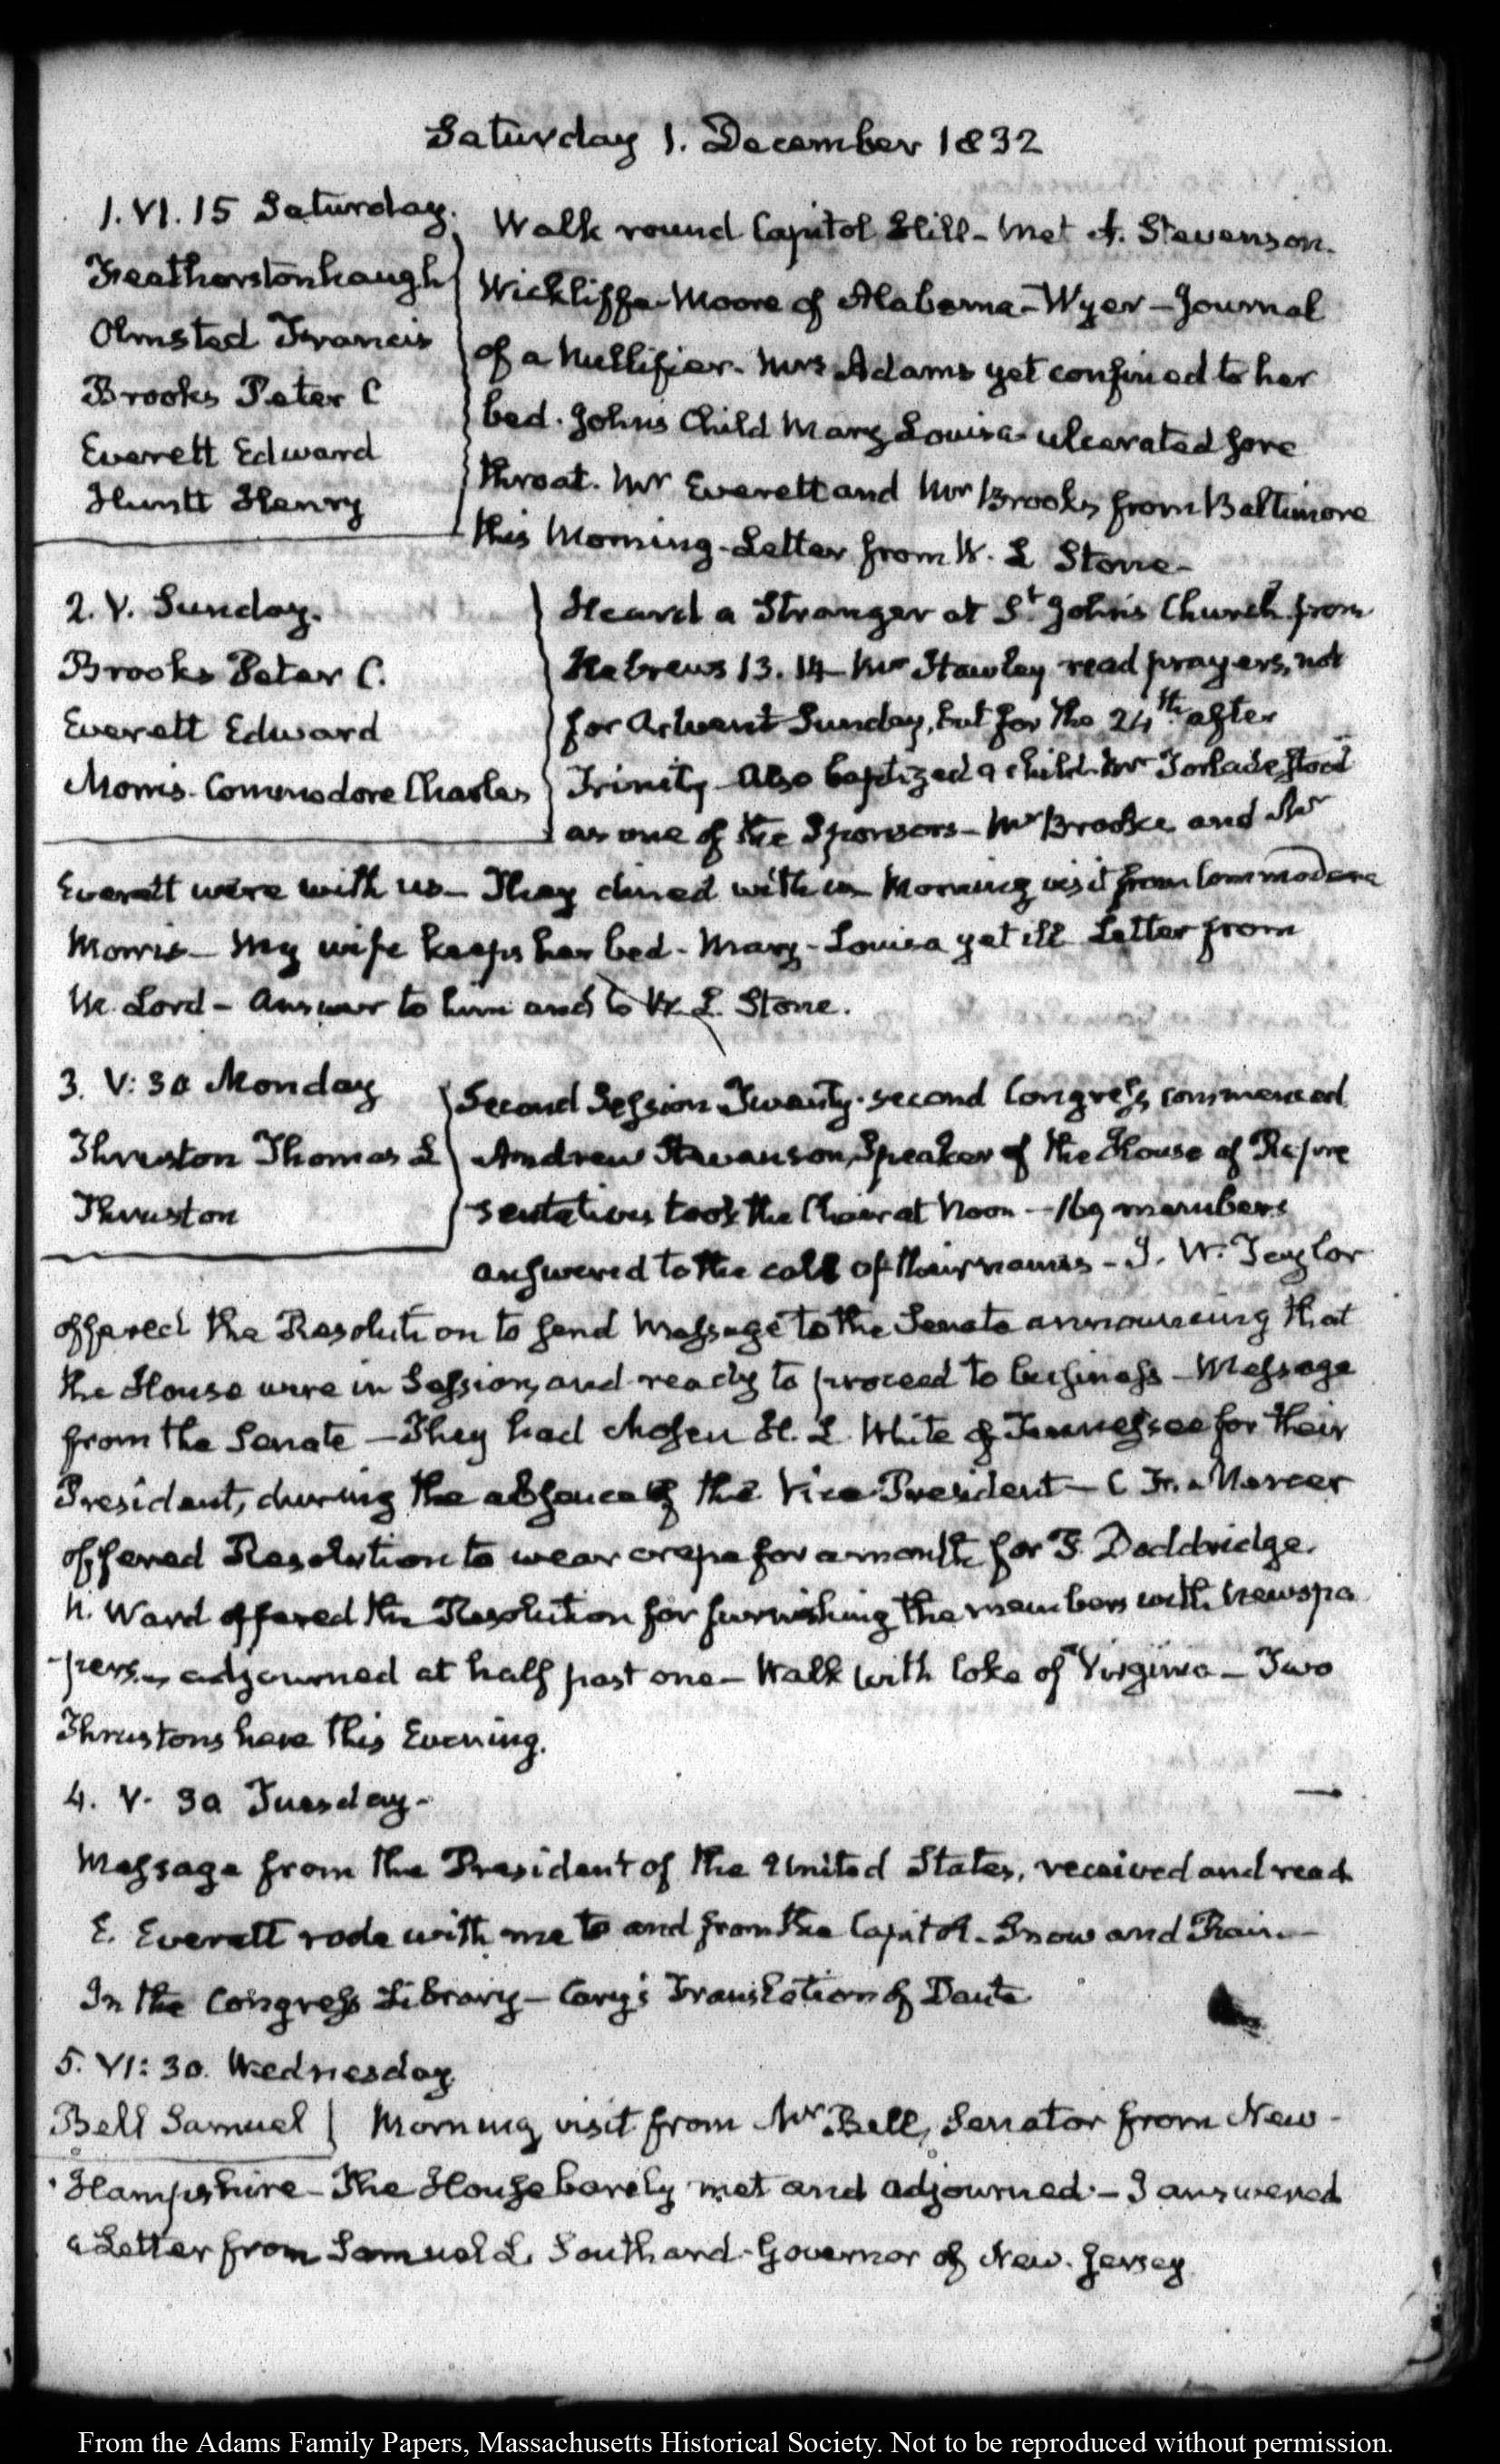 Saturday 1. December 1832
1. VI. 15 Saturday.
Featherstonhaugh
Olmsted Francis
Brooks Peter C
Everett Edward
Huntt Henry
Walk round Capitol Hill - Met A. Stevenson.
Wickliffe - Moore of Alabama - Wyer - Journal
of a Nullifier. Mrs Adams yet confined to her
bed. John's Child Mary Louisa - ulcerated sore
throat. Mr Everett and Mr Brooks from Baltimore
this Morning - Letter from W. L Stone -
2. V. Sunday.
Brooks Peter C.
Everett Edward
Morris - Commodore Charles
Heard a Stranger at St John's Church from
Hebrews 13. 14 - Mr Hawley read prayers, not
for Advent Sunday, but for the 24th after
Trinity - Also baptized a child. Mr Torlade stood
as one of the Sponsors - Mr Brooks and Mr
Everett were with us - They dined with us - Morning visit from Commodore
Morris - My wife keeps her bed - Mary-Louisa yet ill Letter from
M. Lord - Answer to him and to W. L. Stone.
3. V: 30 Monday
Thruston Thomas L
Thruston
Second Session Twenty-second Congress commenced
Andrew Stevenson, Speaker of the House of Repre
sentatives took the Chair at Noon - 169 members
answered to the call of their names - J. W. Taylor
offered the Resolution to send Message to the Senate announcing that
the House were in Session, and ready to proceed to business - Message
from the Senate - They had chosen H. L. White of Tennessee for their
President, during the absence of the Vice-President - C. Fn. Mercer
offered Resolution to wear crape for a month for P. Doddridge.
A. Ward offered the Resolution for furnishing the members with Newspa
-pers - adjourned at half past one - Walk with Coke of Virginia - Two
Thrustons here this Evening.
4. V. 30 Tuesday -
Message from the President of the United States, received and read
E. Everett rode with me to and from the Capitol - Snow and Rain -
In the Congress Library - Cary's Translation of Dante
5. VI: 30. Wednesday.
Bell Samuel
Morning visit from Mr Bell, Senator from New-
Hampshire - The House barely met and adjourned - I answered
a Letter from Samuel L. Southard - Governor of New-Jersey
From the Adams Family Papers, Massachusetts Historical Society. Not to be reproduced without permission.